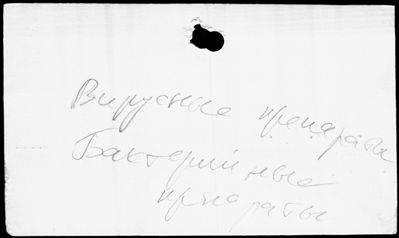 Вирусные препараты
Бактерийные
препараты